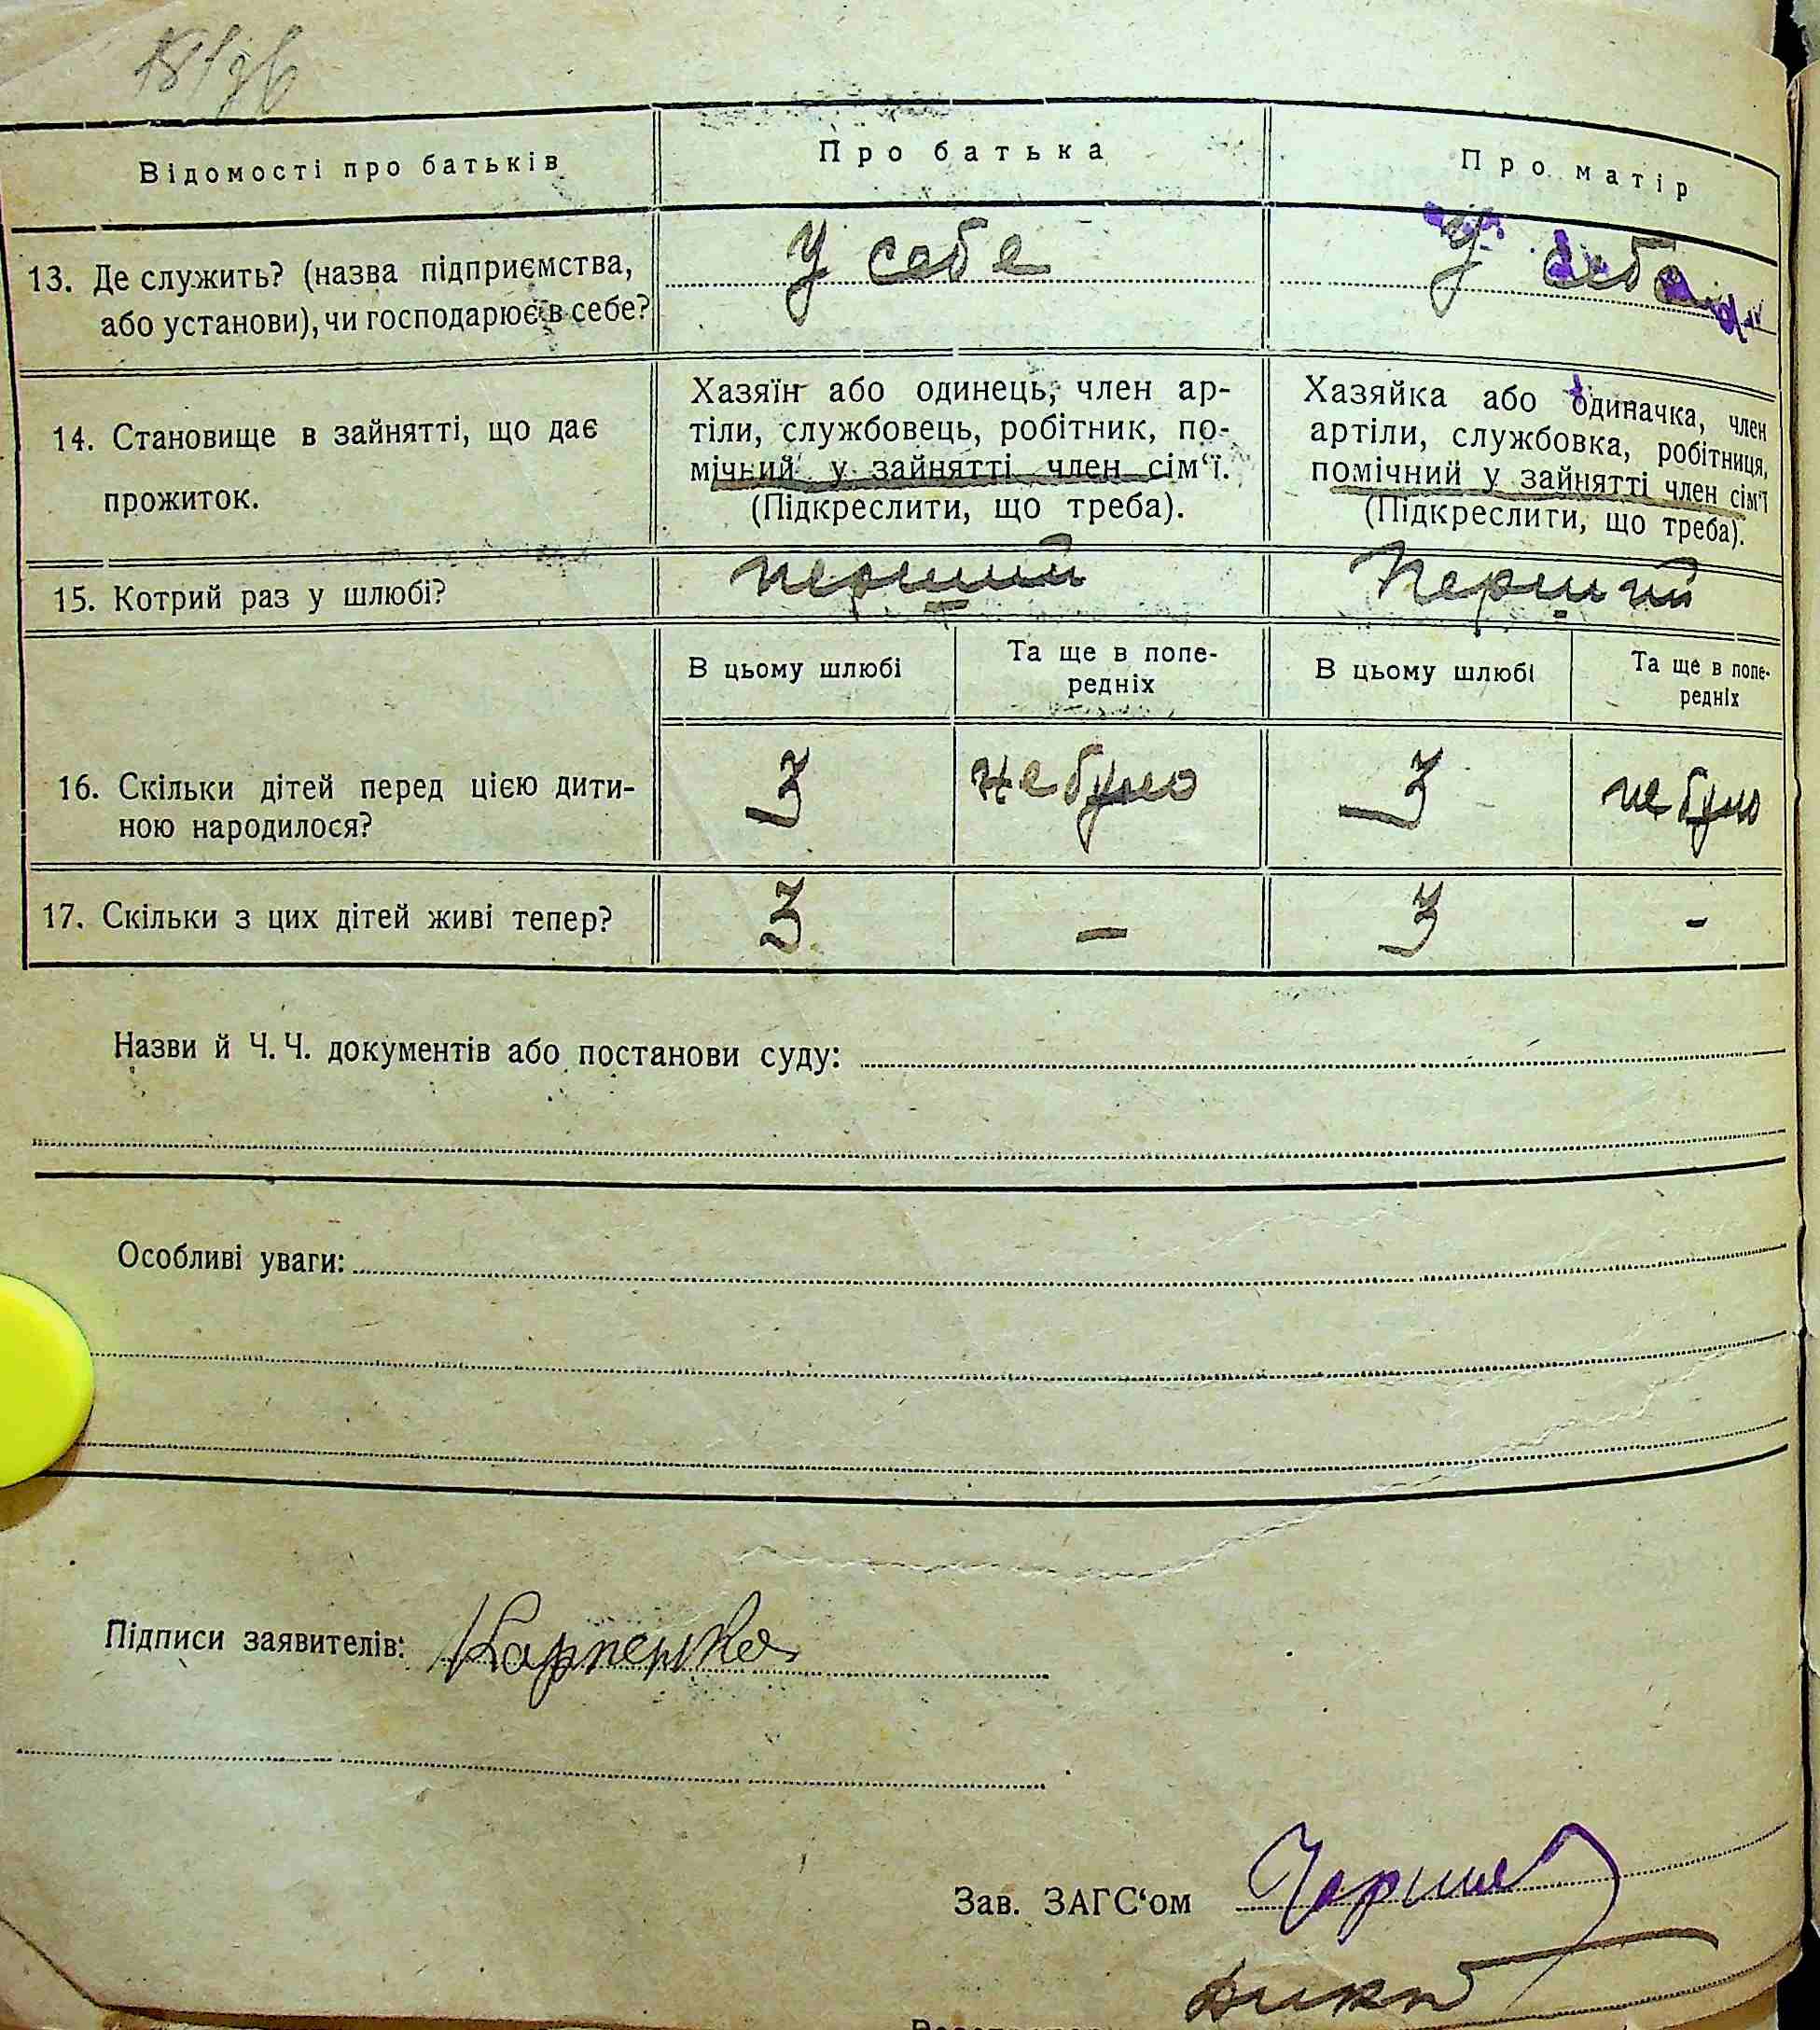 Відомості про батьків
Про батька
Про матір
13. Де служить? (назва підприємства, або установи), чи господарює в себе?
У себе
У себе
14. Становище в зайнятті, що дає прожиток.
Хазяїн або одинець, член ар-
тіли, службовець, робітник, по-
мічний у зайнятті член сім‘ї.
(Підкреслити, що треба).
Хазяйка або одиначка, член
артіли, службовка, робітниця,
помічний у зайнятті член сім‘ї
(Підкреслити, що треба).
15. Котрий раз у шлюбі?
перший
Перший
В цьому шлюбі
Та ще в попе-
редніх
В цьому шлюбі
Та ще в попе-
редніх
16. Скільки дітей перед цією дити-
ною народилося?
3
не було
3
не було
17. Скільки з цих дітей живі тепер?
3
–
3
–
Назви й Ч. Ч. документів або постанови суду:
Особливі уваги:
Підписи заявителів:
Зав. ЗАГС‘ом